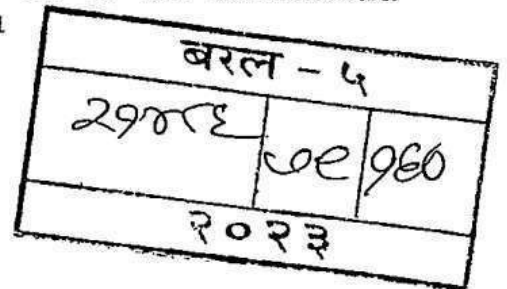 बरल - ५
२१४८६ ७९ १६०
२०२३